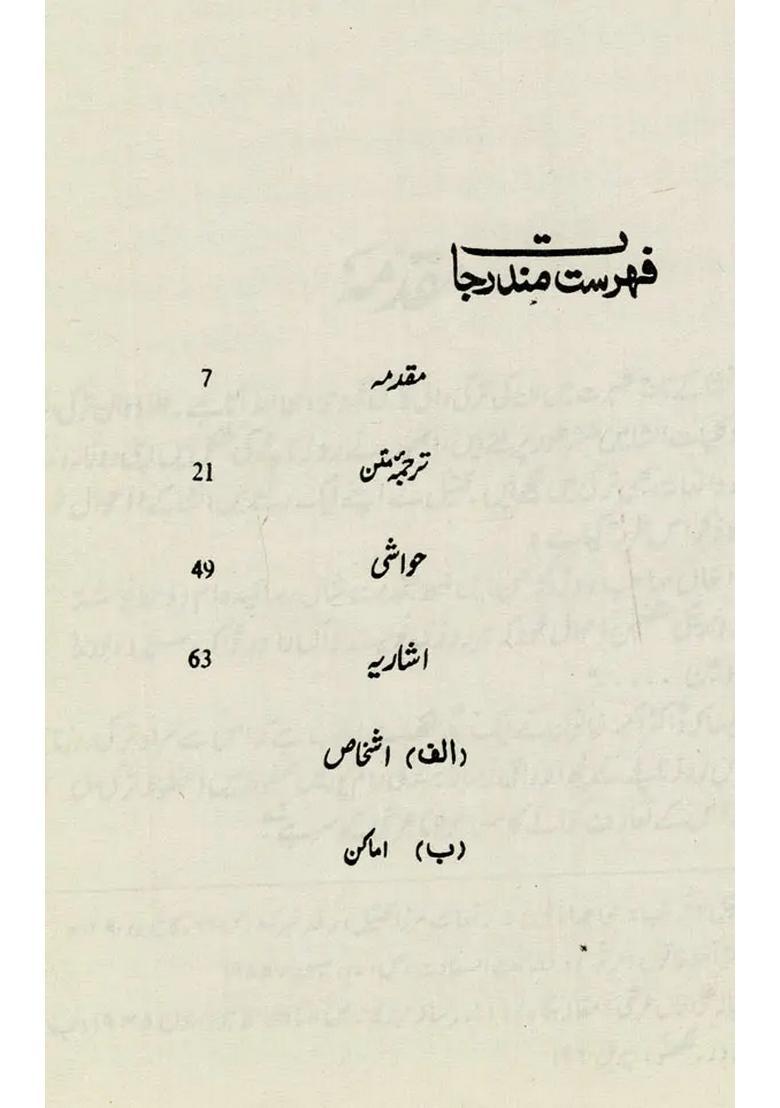 فہرست مندرجات
مقدمہ 7
ترجمۂ متن 21
حواشی 49
اشاریہ 63
(الف) اشخاص
(ب) اماکن